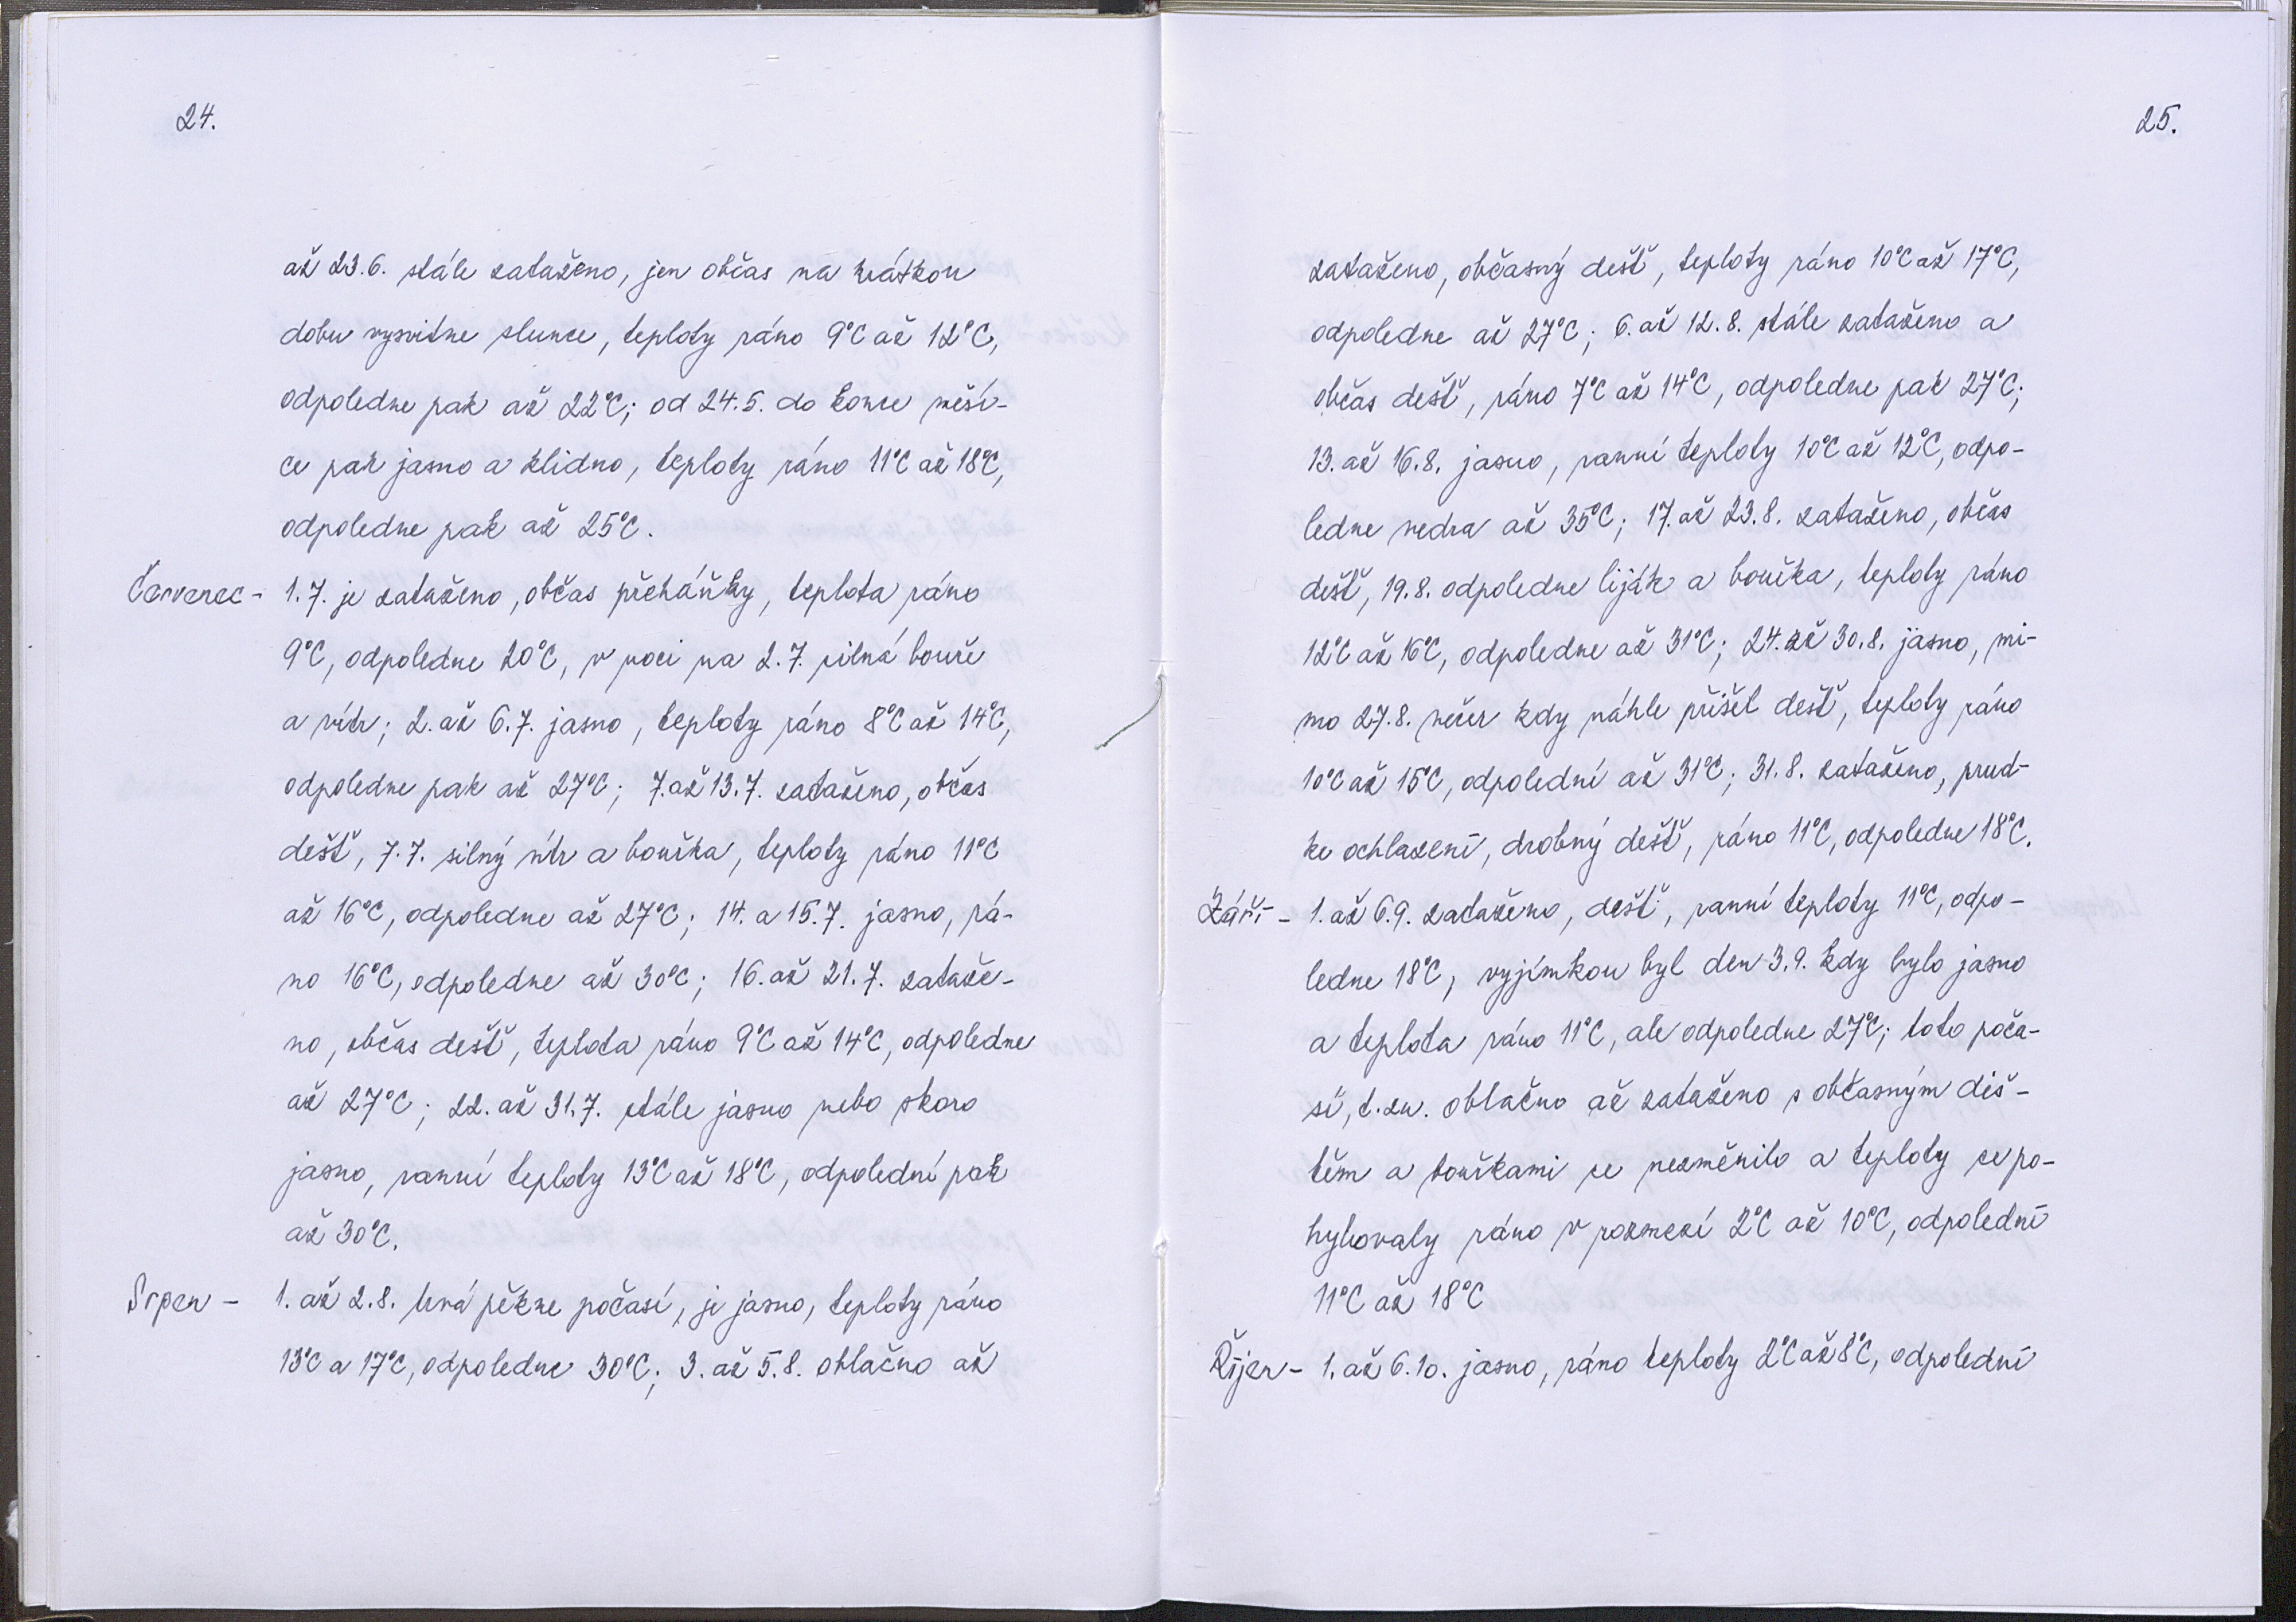 24.
až 23.6. stále zataženo, jen občas na krátkou
dobu vysvitne slunce, teploty ráno 9°C až 12°C,
odpoledne pak až 22°C; od 24.5. do konce měsí-
ce pak jasno a klidno, teploty ráno 11°C až 18°C,
odpoledne pak až 25°C.
Červenec - 1.7. je zataženo, občas přeháňky, teplota ráno
9°C, odpoledne 20°C, v noci na 2.7. silná bouře
a vítr; 2. až 6.7. jasno, teploty ráno 8°C až 14°C,
odpoledne pak až 27°C; 7. až 13.7. zataženo, občas
déšť, 7.7. silný vítr a bouřka, teploty ráno 11°C
až 16°C, odpoledne až 27°C; 14. a 15.7. jasno, rá-
no 16°C, odpoledne až 30°C; 16. až 21.7. zataže-
no, občas déšť, teplota ráno 9°C až 14°C, odpoledne
až 27°C; 22. až 31.7. stále jasno nebo skoro
jasno, ranní teploty 13°C až 18°C, odpolední pak
až 30°C.
Srpen - 1. až 2.8. trvá pěkne počasí, je jasno, teploty ráno
13°C a 17°C, odpoledne 30°C; 3. až 5.8. oblačno až
25.
zataženo, občasný dešť, teploty ráno 10°C až 17°C,
odpoledne až 27°C; 6. až 12.8. stále zataženo a
občas dešť, ráno 7°C až 14°C, odpoledne pak 27°C;
13. až 16.8. jasno, ranní teploty 10°C až 12°C, odpo-
ledne vedra až 35°C; 17. až 23.8. zataženo, občas
dešť, 19.8. odpoledne liják a bouřka, teploty ráno
12°C až 16°C, odpoledne až 31°C; 24. až 30.8. jasno, mi-
mo 27.8. večer kdy náhle přišel dešť, teploty ráno
10°C až 15°C, odpolední až 31°C; 31.8. zataženo, prud-
ke ochlazení, drobný dešť, ráno 11°C, odpoledne 18°C.
Září - 1. až 6.9. zataženo, dešť, ranní teploty 11°C, odpo-
ledne 18°C, vyjímkou byl den 3.9. kdy bylo jasno
a teplota ráno 11°C, ale odpoledne 27°C; toto poča-
sí, t.zn. oblačno až zataženo s občasným deš-
těm a bouřkami se nezměnilo a teploty se po-
hybovaly ráno v rozmezí 2°C až 10°C, odpolední
11°C až 18°C
Říjen - 1. až 6.10. jasno, ráno teploty 2°C až 8°C, odpolední